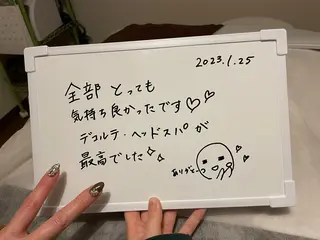 2023.1.25
全部 とっても
気持ち良かったです♡♡
デコルテ・ヘッドスパが
最高でした✧✧
ありがとーっ